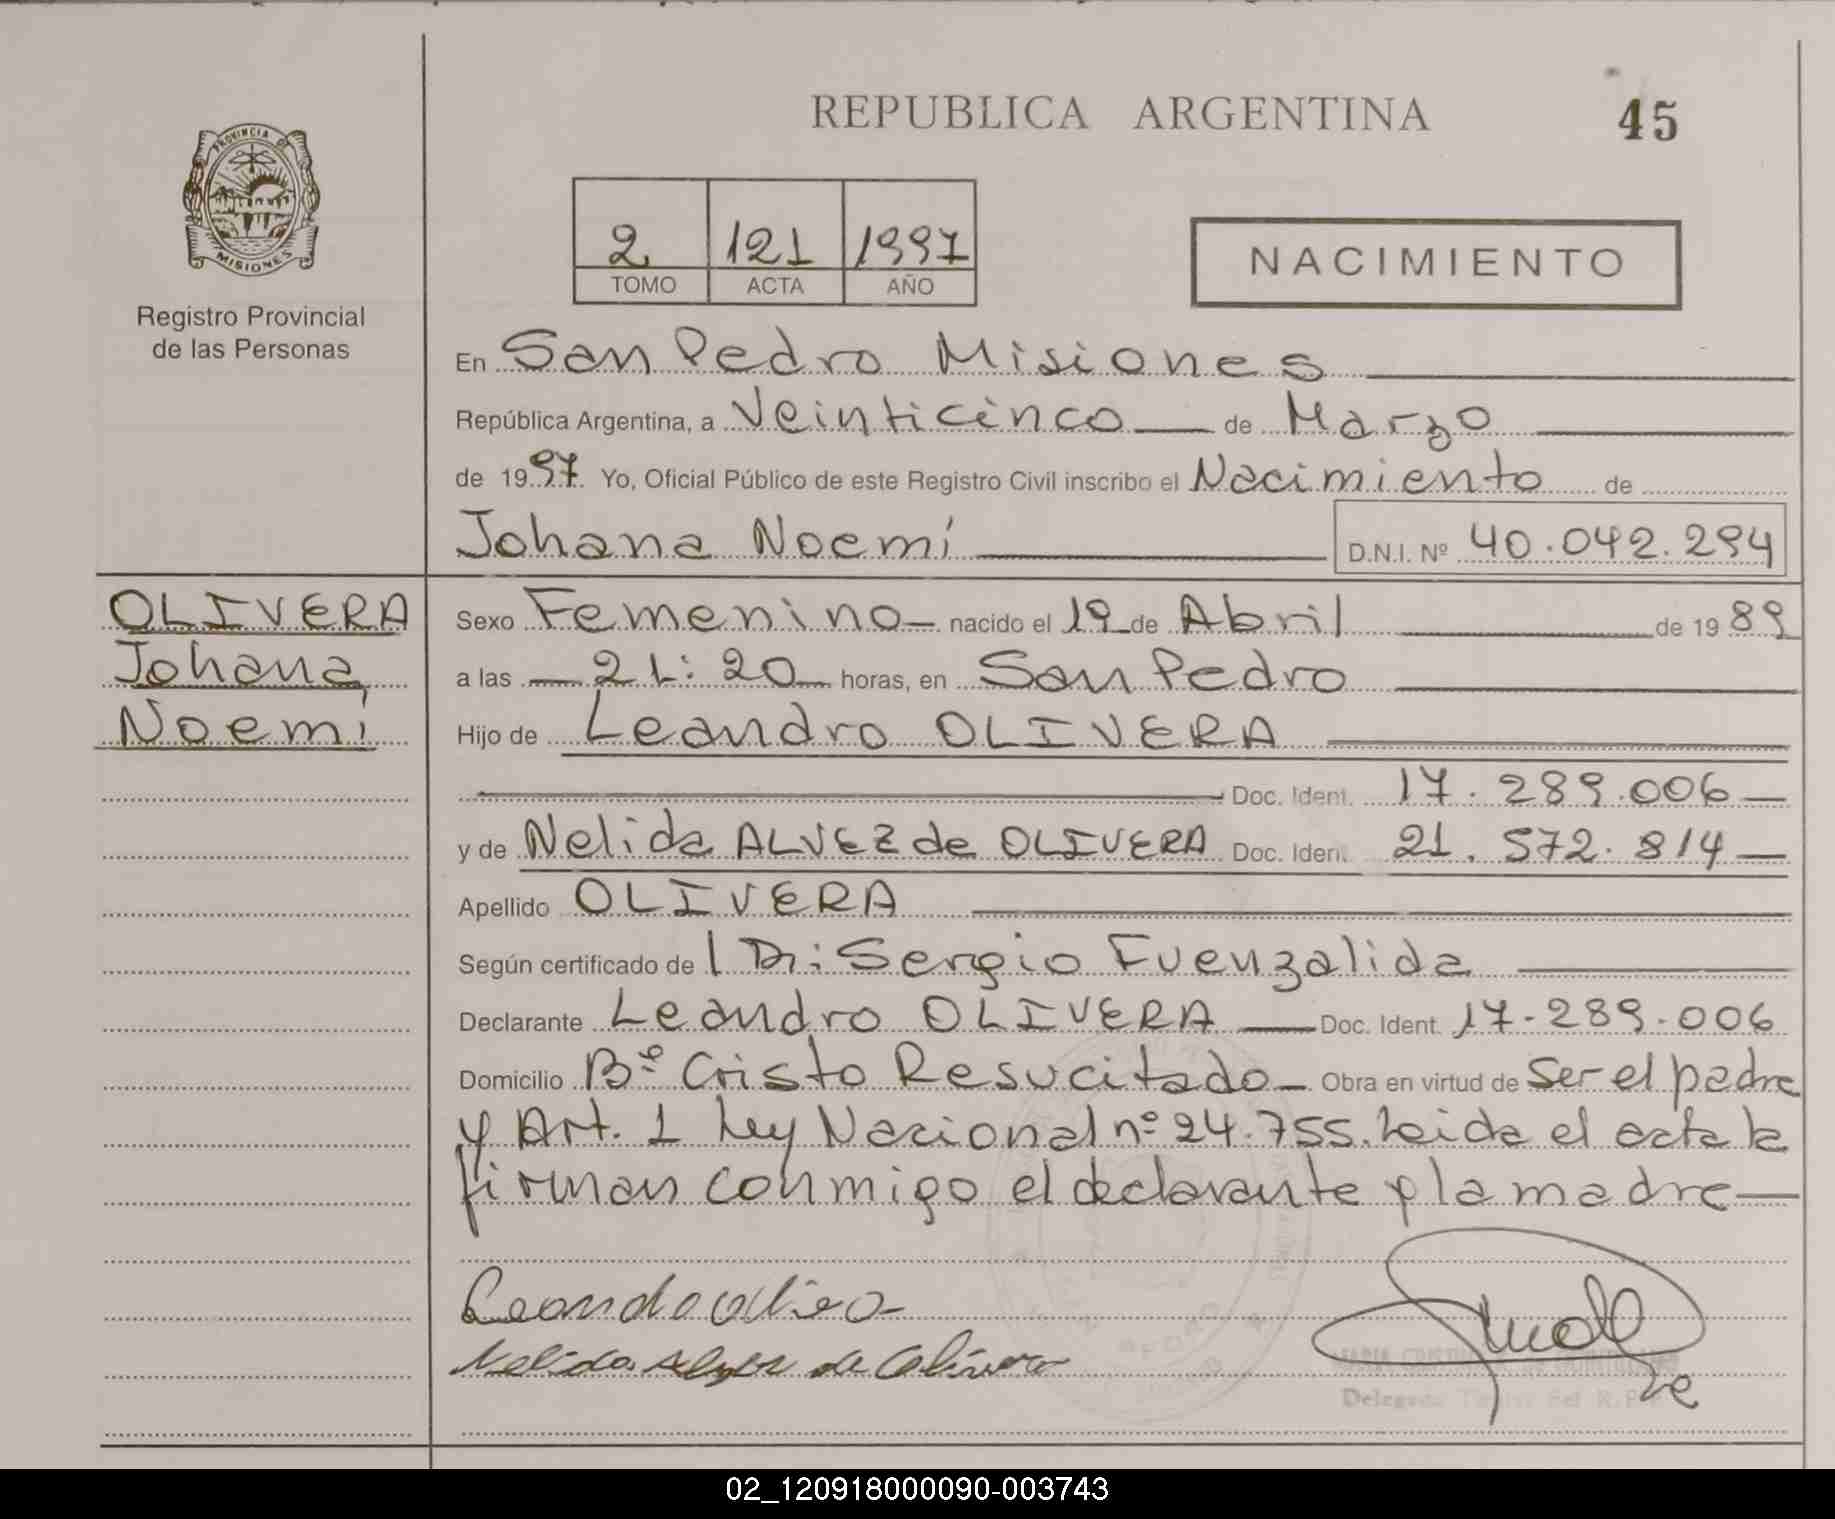 REPUBLICA ARGENTINA
45
PROVINCIA DE
MISIONES
Registro Provincial
de las Personas
2 121 1997
TOMO ACTA AÑO
NACIMIENTO
En San Pedro Misiones
República Argentina, a Veinticinco de Marzo
de 1997. Yo, Oficial Público de este Registro Civil inscribo el Nacimiento de
Johana Noemí D.N.I. Nº 40.042.294
OLIVERA
Johana
Noemí
Sexo Femenino nacido el 19 de Abril de 1989
a las 21:20 horas, en San Pedro
Hijo de Leandro OLIVERA
Doc. Ident. 17.289.006
y de Nelida ALVEZ de OLIVERA Doc. Ident. 21.572.814
Apellido OLIVERA
Según certificado de Dr: Sergio Fuenzalida
Declarante Leandro OLIVERA Doc. Ident. 17-289-006
Domicilio Bº Cristo Resucitado Obra en virtud de ser el padre
y Art. 1 Ley Nacional nº 24.755. Leida el acta la
firman conmigo el declarante y la madre
Nelida Alvez de Olivera
02_120918000090-003743